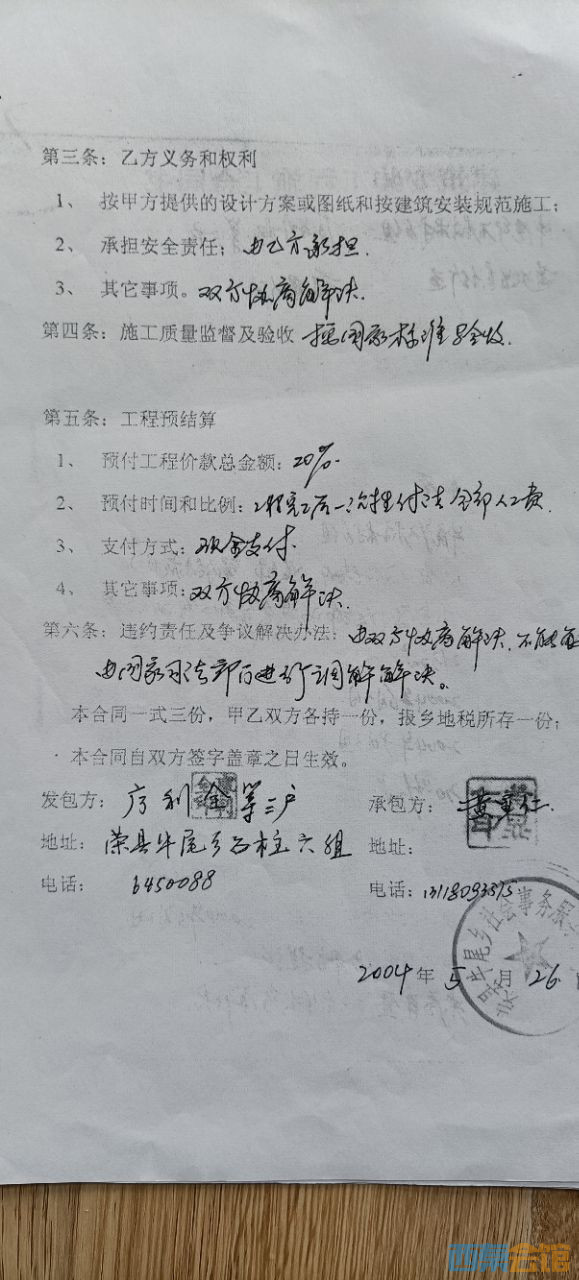 第三条：乙方义务和权利
1、 按甲方提供的设计方案或图纸和按建筑安装规范施工；
2、 承担安全责任；由乙方承担.
3、 其它事项。双方协商解决.
第四条：施工质量监督及验收 按国家标准验收.
第五条：工程预结算
1、 预付工程价款总金额：20%.
2、 预付时间和比例：工程完工后一次性付清全部人工费.
3、 支付方式：现金支付.
4、 其它事项：双方协商解决.
第六条：违约责任及争议解决办法：由双方协商解决.不能
由国家司法部门进行调解解决。
本合同一式三份，甲乙双方各持一份，报乡地税所存一份；
本合同自双方签字盖章之日生效。
发包方： 利金等三户
承包方：
地址：荣县牛尾乡石柱六组
地址：
电话： 6450088
电话：
牛尾乡社会事务服
2004年5月26